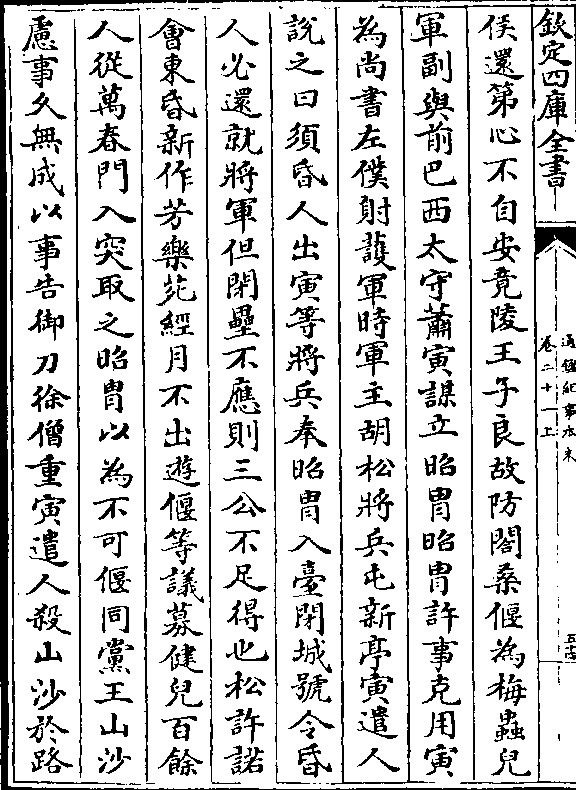 欽定四庫全書
通鑑紀事本末
卷二十一上
侯還第心不自安竟陵王子良故防閤桑偃為梅蟲兒
軍副與前巴西太守蕭寅謀立昭胄昭胄許事克用寅
為尚書左僕射護軍時軍主胡松將兵屯新亭寅遣人
說之曰須昏人出寅等將兵奉昭胄入臺閉城號令昏
人必還就將軍但閉壘不應則三公不足得也松許諾
會東昏新作芳樂苑經月不出遊偃等議募健兒百餘
人從萬春門入突取之昭胄以為不可偃同黨王山沙
慮事久無成以事告御刀徐僧重寅遣人殺山沙於路